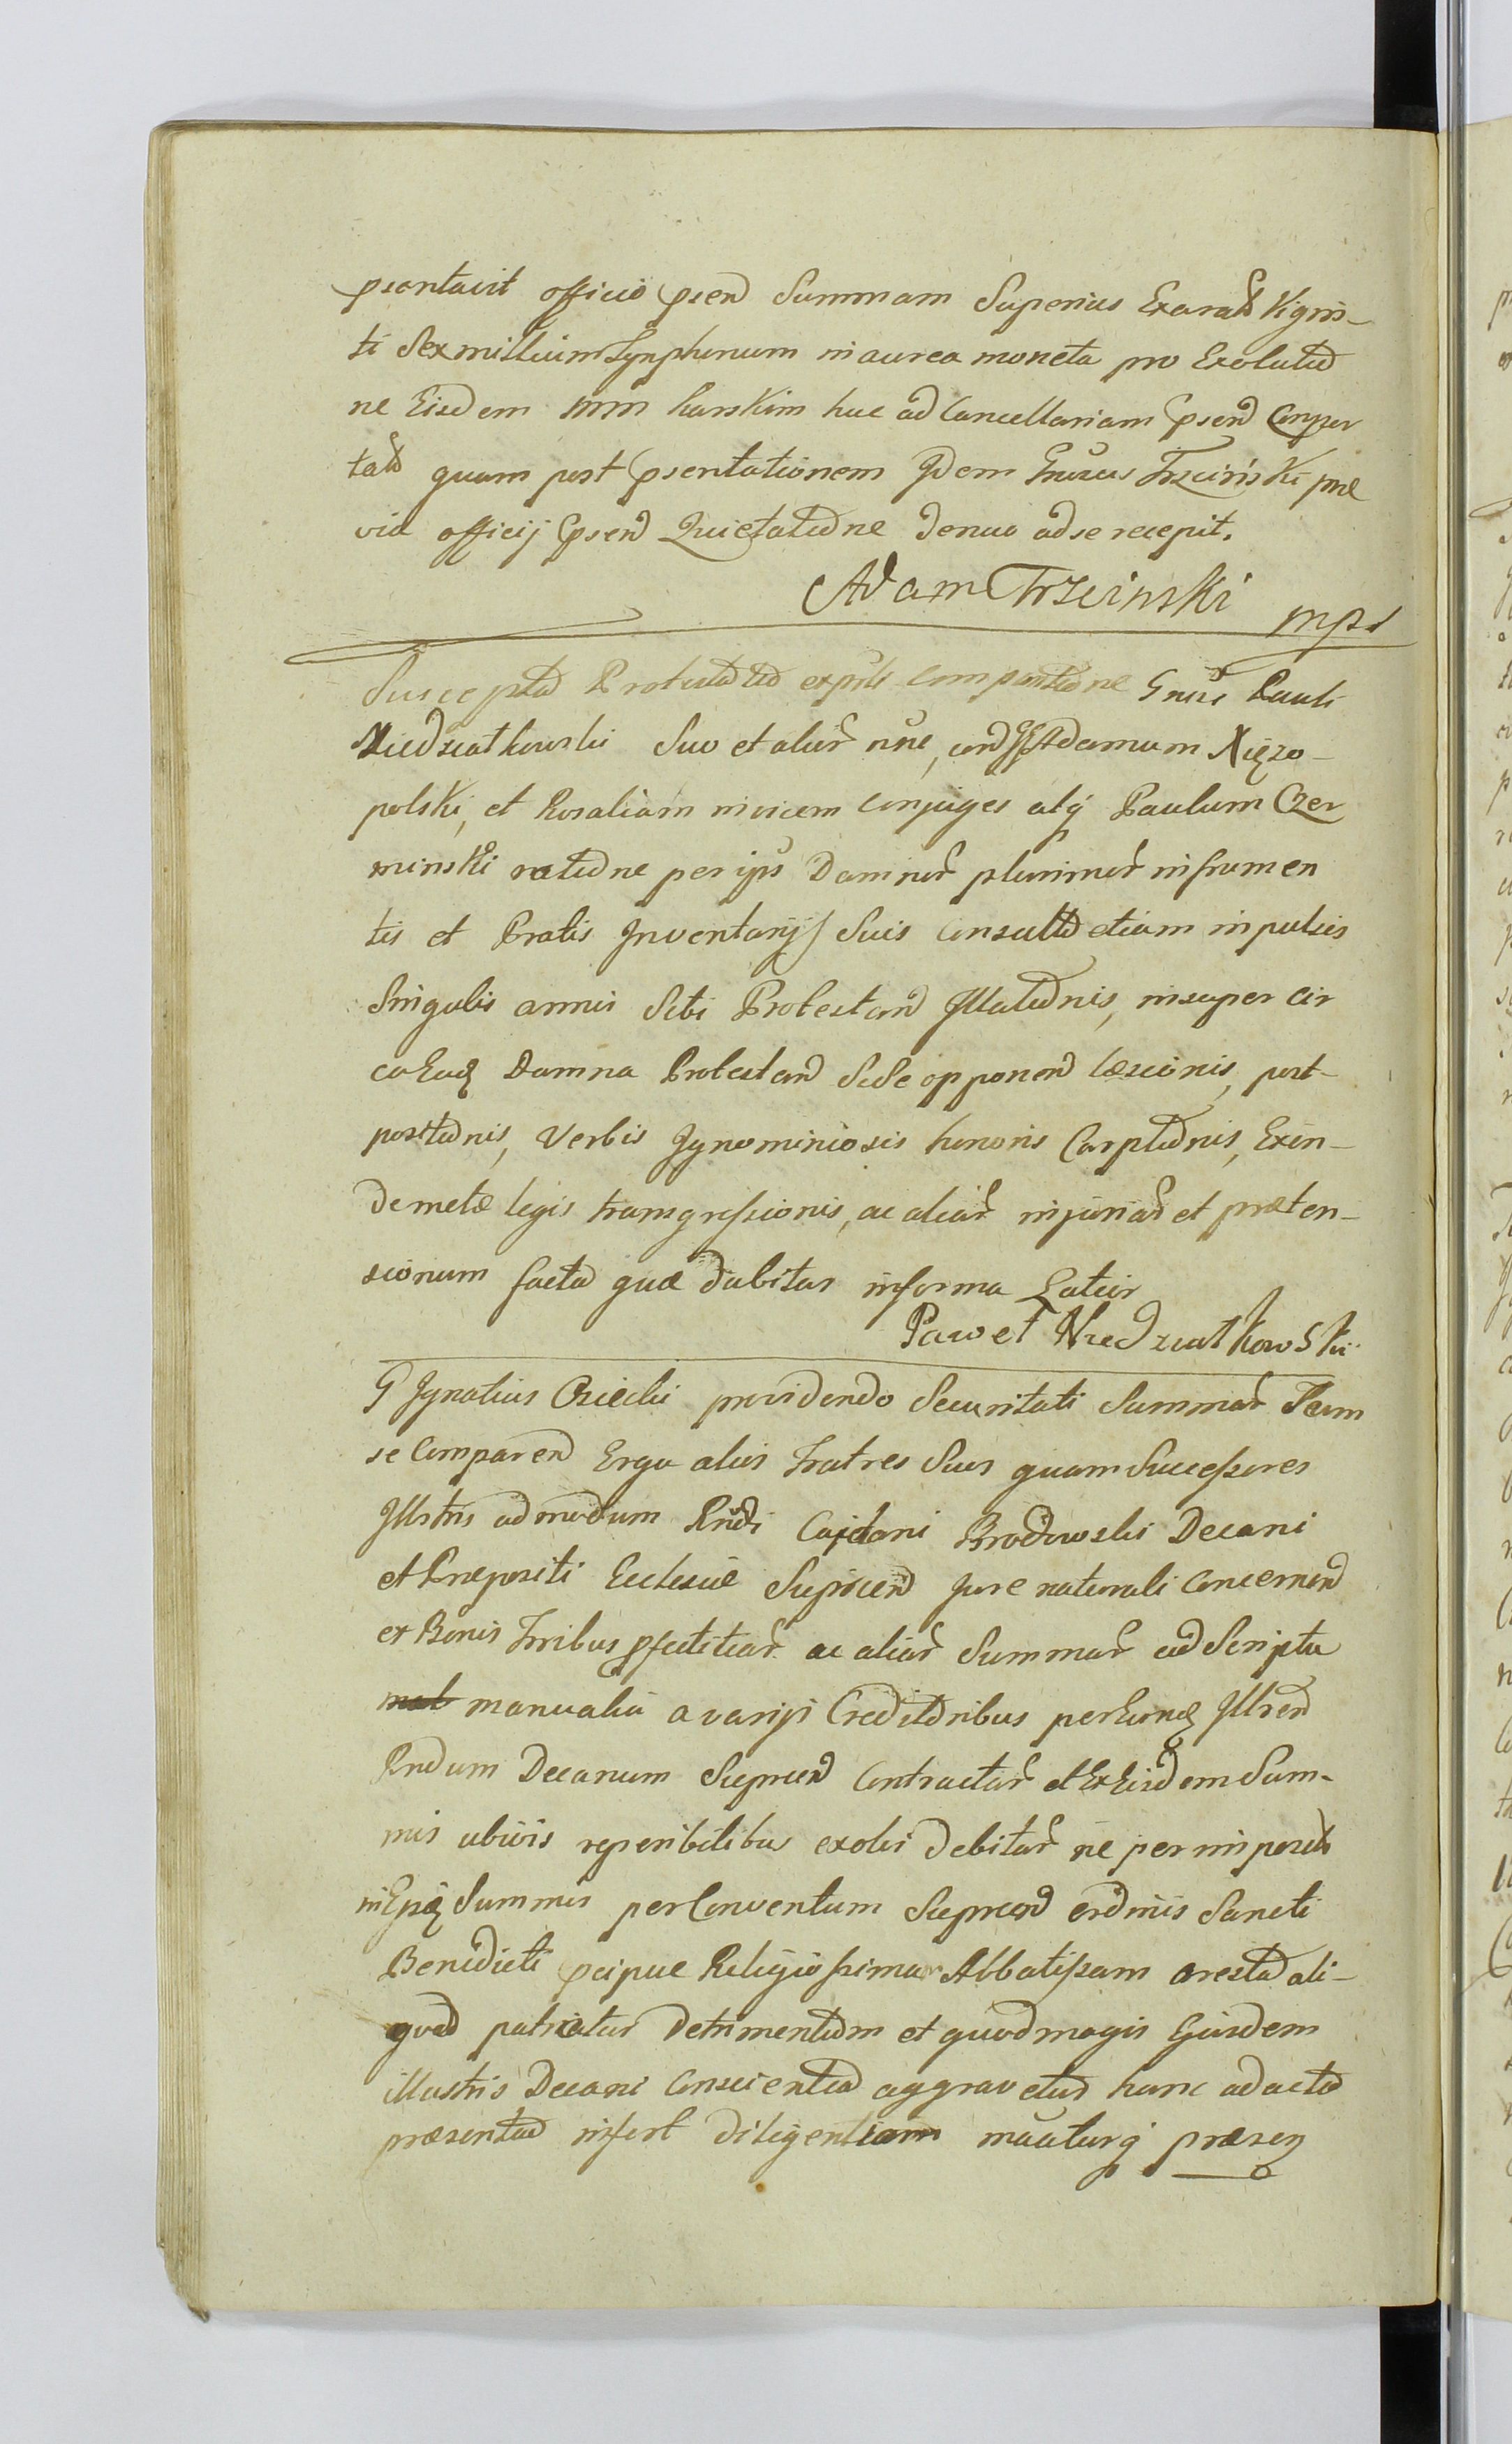 psentavit officio psen Summam Superius Exarat Vigin-
ti Sex millium Tynphonum in aurea moneta pro Exolutio
ne Eisdem mm Karskim huc ad Cancellariam psen Compor
tat quam post psentationem Idem Gnosus Trzciński præ
via officij psen Quietatione denuo ad se recepit.
Adam Trzcinski mpr
Suscepta Protestatio exptis comparitione Gnosi Pauli
Niedziatkowski Suo et alior nne, con GG Adamum Xięzo-
polski, et Rosaliam invicem conjuges atq Paulum Czer
minski ratione per ipsos Damnor plurimor in frumen
tis et Pratis Inventarijs Suis consulto etiam impulsis
Singulis annis Sibi Protestan Illationis, insuper cir
ca Eaq Damna Protestan Sese opponen læsionis, post-
positionis, Verbis Ignominiosis honoris Carptionis, Exin-
de metæ legis transgressionis, ac aliar injuriar et præten-
sionum facta quæ dabitur in forma Latior
Paweł Niedzwiatkowski
G Ignatius Osiecki providendo Securitati Summar Tam
se Comparen Ergo alios Fratres Suos quam Successores
Illstris admodum Rndi Cajetani Brodowski Decani
et Præpositi Ecclesiæ Suprascen Jure naturali Concernen
ex Bonis Trribus pfectitiar ac aliar Summar ad Scripta
manualia a varijs Creditoribus per Eunq Illren
Rndum Decanum Suprascen Contractar et Ex Eisdem Sum-
mis ubivis reperibilibus exolvi debitar ne per imposit
in Epsq Summis per Conventum Suprascen ordinis Sancti
Benedicti pcipue Religiossimam Abbatissam aresta ali-
quod patiatur detrimentum et quod magis Ejusdem
illustris Decani Conscientia aggravetur hanc ad acta
præsentia infert diligentiam maaturq præseq